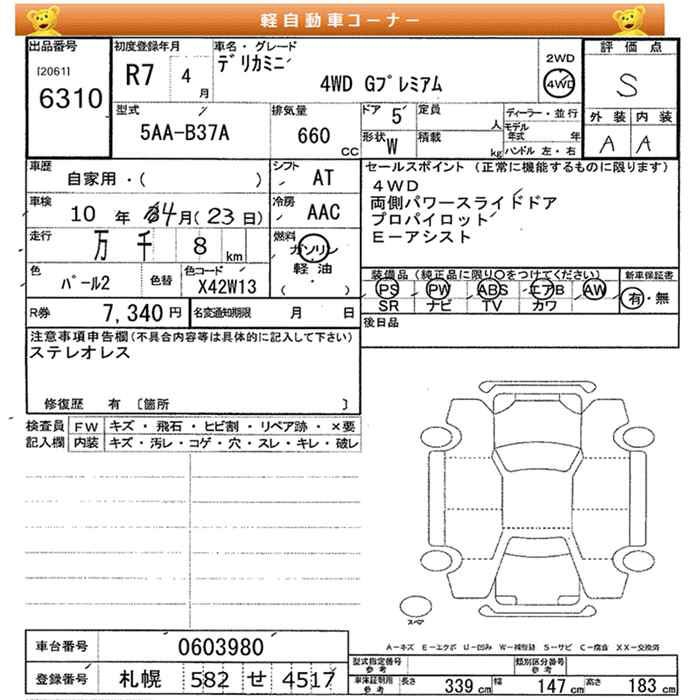 軽自動車コーナー
出品番号 [2061] 6310
初度登録年月 R7 4月
車名・グレード デリカミニ 4WD Gプレミアム
2WD 4WD
評価点 S
外装 A 内装 A
型式 5AA-B37A
排気量 660 CC
ドア 5
形状 W
定員 人
積載 kg
ディーラー・並行
モデル年式 年
ハンドル 左・右
車歴 自家用・( )
シフト AT
車検 10年 4月(23日)
冷房 AAC
走行 万 千 8 km
燃料 ガソリン 軽油 ( ・ )
色 パール2 色替
色コード X42W13
R券 7,340円
名変通知期限 月 日
セールスポイント(正常に機能するものに限ります)
4WD
両側パワースライドドア
プロパイロット
E-アシスト
装備品(純正品に限り○をつけてください)
PS PW ABS エアB AW
SR ナビ TV カワ
新車保証書 有・無
後日品
注意事項申告欄(不具合内容等は具体的に記入して下さい)
ステレオレス
修復歴 有 [箇所 ]
検査員記入欄
FW キズ・飛石・ヒビ割・リペア跡・×要
内装 キズ・汚レ・コゲ・穴・スレ・キレ・破レ
スペア
A-キズ E-エクボ U-凹み W-補修跡 S-サビ C-腐食 XX-交換済
車台番号 0603980
登録番号 札幌 582 せ 4517
型式指定番号 参考
類別区分番号 参考
車庫証明用 参考 長さ 339cm 幅 147cm 高さ 183cm